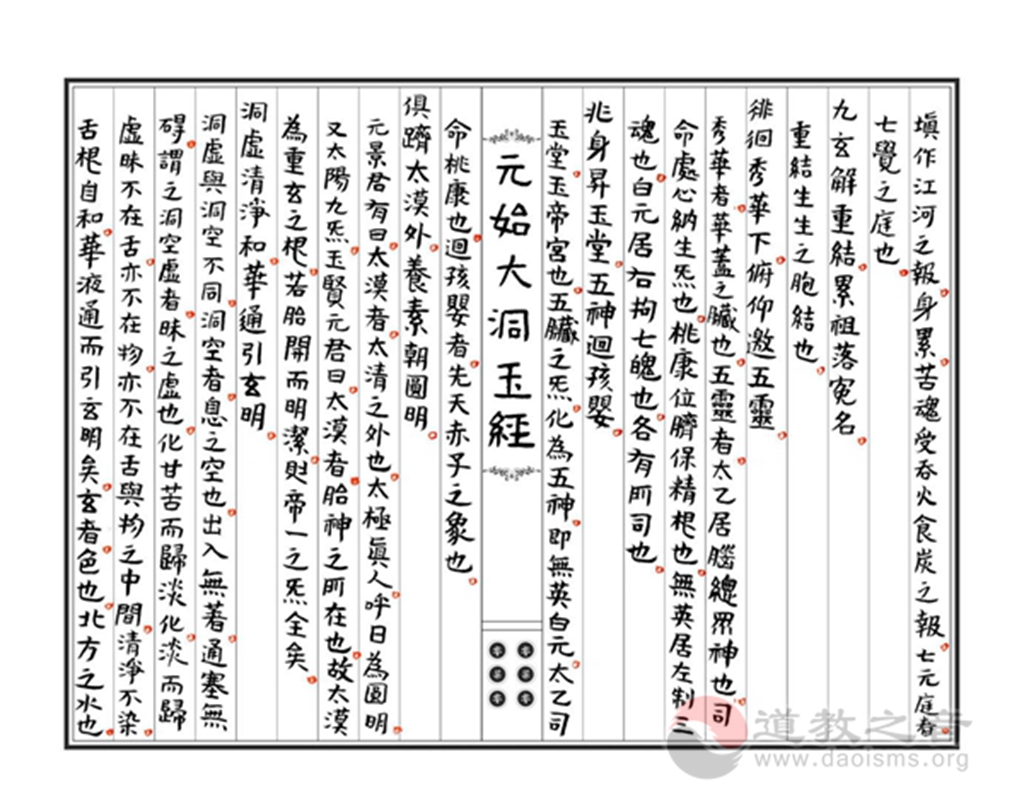 填作江河之報身累苦魂受吞火食炭之報七元庭者
七覺之庭也
九玄解重結累祖落冤名
重結生生之胞結也
徘徊秀華下俯仰邀五靈
秀華者華蓋之臟也五靈者太乙居腦總眾神也司
命處心納生炁也桃康位臍保精根也無英居左制三
魂也白元居右拘七魄也各有所司也
兆身昇玉堂五神迴孩嬰
玉堂玉帝宮也五臟之炁化為五神即無英白元太乙司
元始大洞玉經
命桃康也迴孩嬰者先天赤子之象也
俱躋太漠外養素朝圓明
元景君有曰太漠者太清之外也太極眞人呼日為圓明
又太陽九炁玉賢元君曰太漠者胎神之所在也故太漠
為重玄之根若胎開而明潔則帝一之炁全矣
洞虛清淨和華通引玄明
洞虛與洞空不同洞空者息之空也出入無著通塞無
碍謂之洞空虛者昧之虛也化甘苦而歸淡化淡而歸
虛昧不在舌亦不在物亦不在舌與物之中間清淨不染
舌根自和華液通而引玄明矣玄者色也北方之水也
道教之音
www.daoisms.org